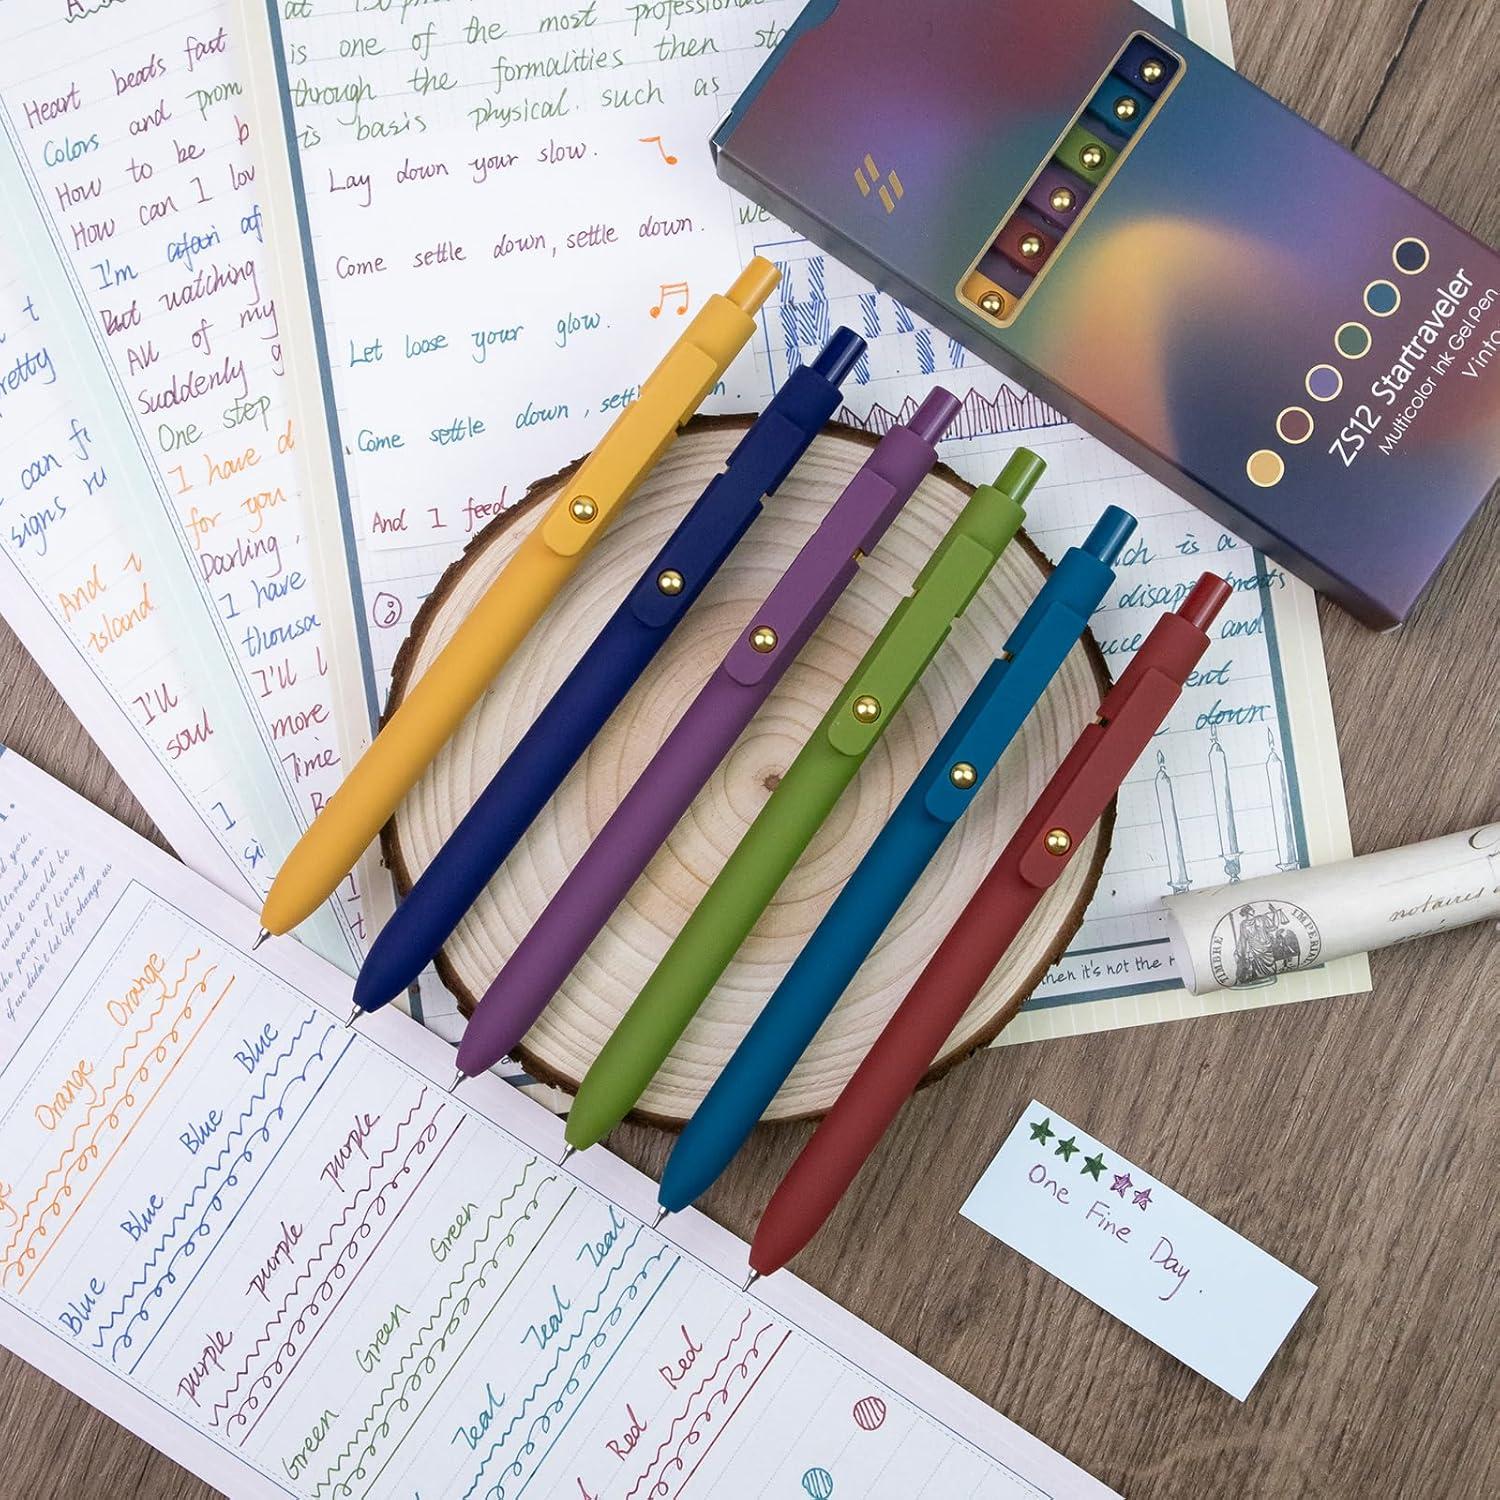 at
is one of the most professional
through the formalities then
is basis physical. such as
Heart beats fast
Colors and prom
How to be b
How can I lov
I'm afari af
But watching
All of my
Suddenly g
One step
I have d
for you
Darling,
I have
thousa
I'll l
more
Time
Lay down your slow.
Come settle down, settle down.
Let loose your glow.
Come settle down, settl n.
And I feed
etty
can fi
signs ru
And i
island
I'll
soul
ZS12 Startraveler
Multicolor Ink Gel Pen
Vinta
ch is a
disappointments
and
ent
down
hen it's not the r
TIMBRE IMPERIAL
notaires
what would be
the point of living
if we didn't let life change us
Orange Orange
Blue Blue Blue Blue
purple purple purple
Green Green Green
Teal Teal Teal
Red Red
One Fine Day.